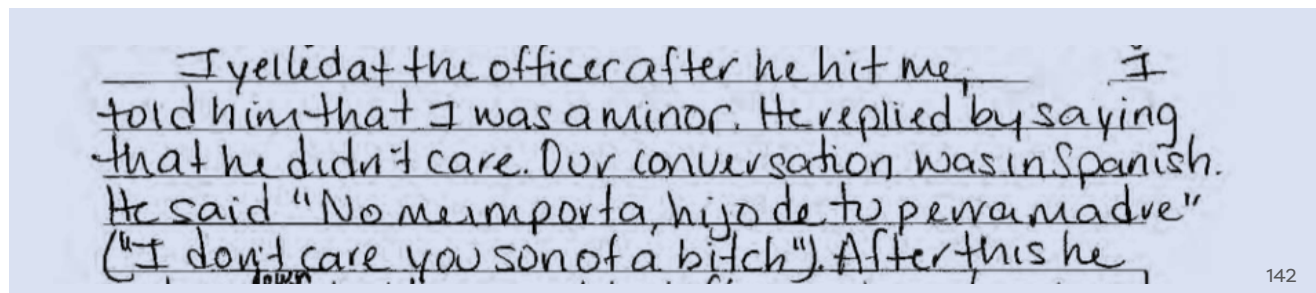 I yelled at the officer after he hit me, I
told him that I was a minor. He replied by saying
that he didn't care. Our conversation was in Spanish.
He said "No me importa, hijo de tu perra madre"
("I don't care you son of a bitch"). After this he
142